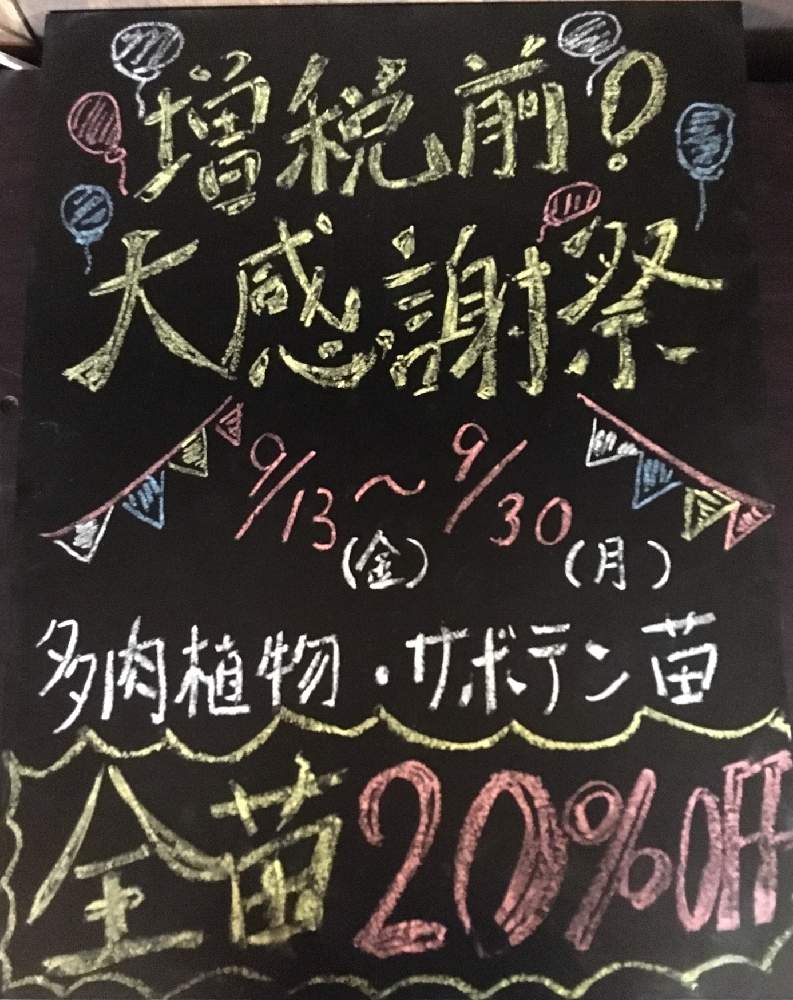 増税前!
大感謝祭
9/13(金)〜9/30(月)
多肉植物・サボテン苗
全苗20%OFF